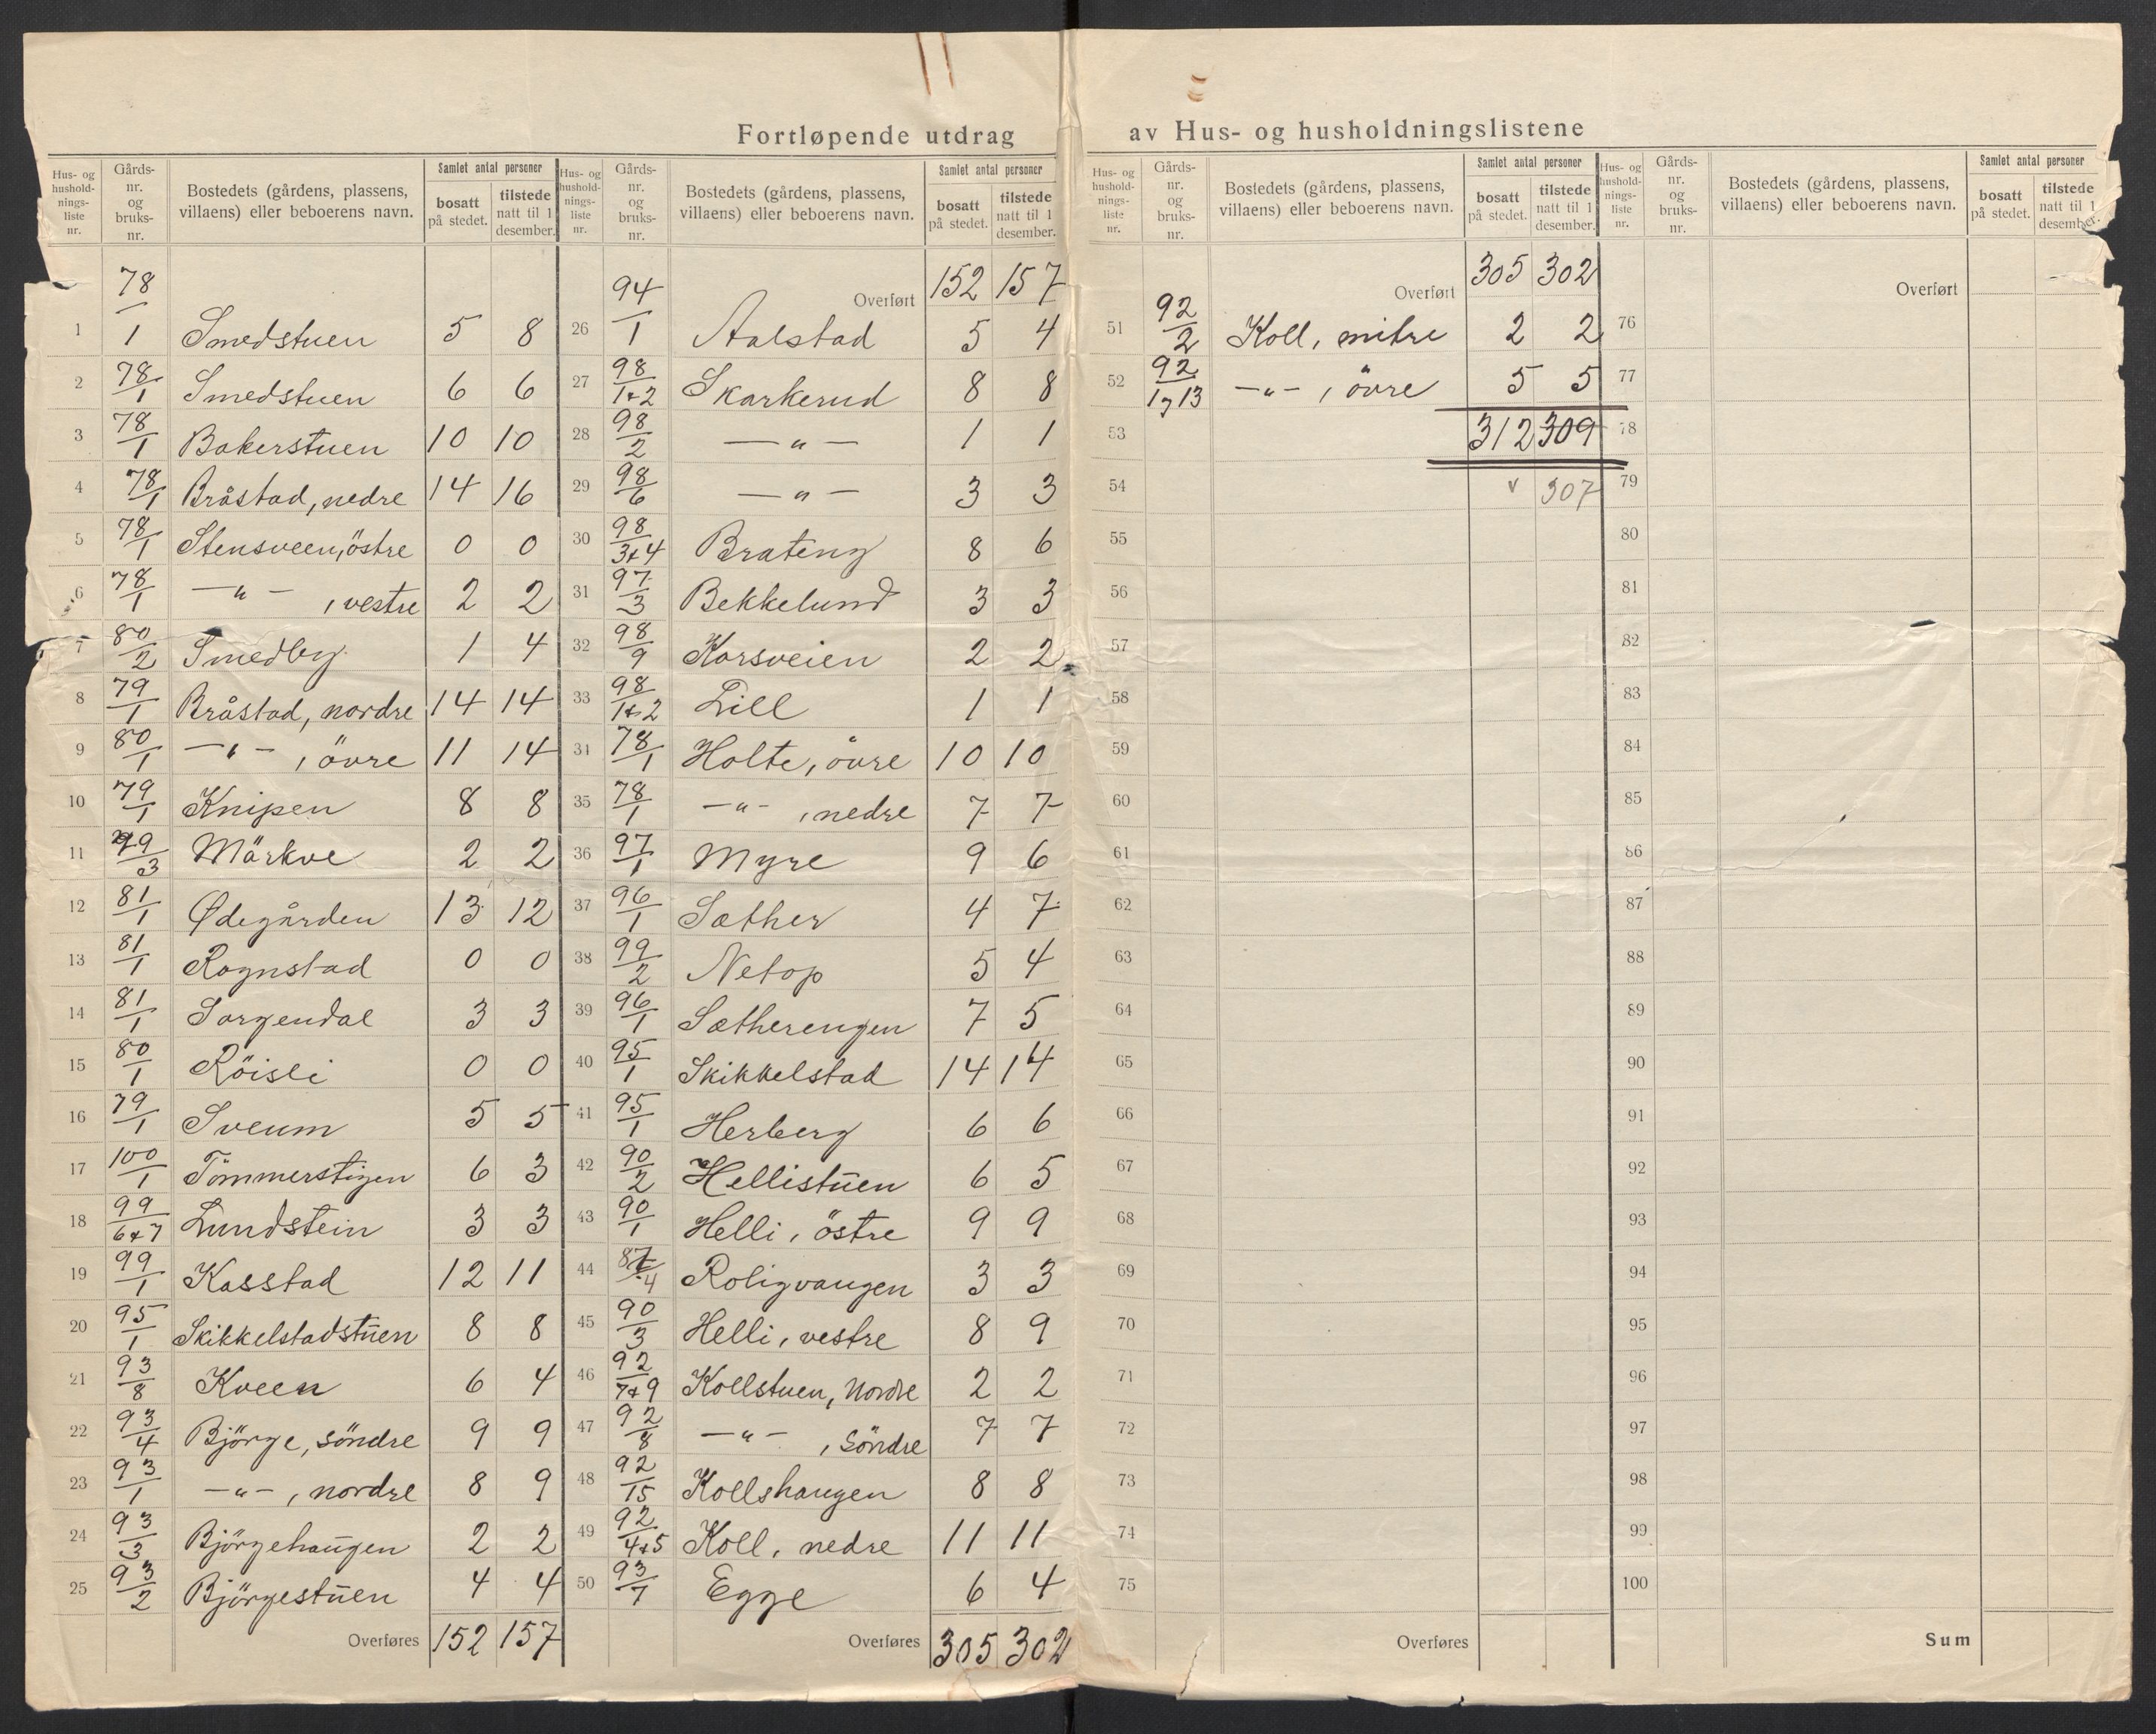 Fortløpende utdrag av Hus- og husholdningslistene
Hus- og husholdningsliste nr. | Gårdsnr. og bruksnr. | Bostedets (gårdens, plassens, villaens) eller beboerens navn. | Samlet antal personer: bosatt på stedet. | tilstede natt til 1 desember.
1 | 78/1 | Smedstuen | 5 | 8
2 | 78/1 | Smedstuen | 6 | 6
3 | 78/1 | Bakerstuen | 10 | 10
4 | 78/1 | Bråstad, nedre | 14 | 16
5 | 78/1 | Stensveen, östre | 0 | 0
6 | 78/1 | —"— , vestre | 2 | 2
7 | 80/2 | Smedby | 1 | 4
8 | 79/1 | Bråstad, nordre | 14 | 14
9 | 80/1 | —"— , övre | 11 | 14
10 | 79/1 | Knipen | 8 | 8
11 | 79/3 | Märkve | 2 | 2
12 | 81/1 | Ødegården | 13 | 12
13 | 81/1 | Rognstad | 0 | 0
14 | 81/1 | Sorgendal | 3 | 3
15 | 80/1 | Röisli | 0 | 0
16 | 79/1 | Sveum | 5 | 5
17 | 100/1 | Tömmerstigen | 6 | 3
18 | 99/6+7 | Lundstein | 3 | 3
19 | 99/1 | Kasstad | 12 | 11
20 | 95/1 | Skikkelstadstuen | 8 | 8
21 | 93/8 | Kveen | 6 | 4
22 | 93/4 | Björge, söndre | 9 | 9
23 | 93/1 | —"— , nordre | 8 | 9
24 | 93/3 | Björgehaugen | 2 | 2
25 | 93/2 | Björgestuen | 4 | 4
Overføres | 152 | 157
Hus- og husholdningsliste nr. | Gårdsnr. og bruksnr. | Bostedets (gårdens, plassens, villaens) eller beboerens navn. | Samlet antal personer: bosatt på stedet. | tilstede natt til 1 desember.
Overført | 152 | 157
26 | 94/1 | Aalstad | 5 | 4
27 | 98/1+2 | Skarkerud | 8 | 8
28 | 98/2 | —"— | 1 | 1
29 | 98/6 | —"— | 3 | 3
30 | 98/3+4 | Brateng | 8 | 6
31 | 97/3 | Bekkelund | 3 | 3
32 | 98/9 | Korsveien | 2 | 2
33 | 98/1+2 | Lill | 1 | 1
34 | 78/1 | Holte, övre | 10 | 10
35 | 78/1 | —"— , nedre | 7 | 7
36 | 97/1 | Myre | 9 | 6
37 | 96/1 | Sæther | 4 | 7
38 | 99/2 | Netop | 5 | 4
39 | 96/1 | Sætherengen | 7 | 5
40 | 95/1 | Skikkelstad | 14 | 14
41 | 95/1 | Herberg | 6 | 6
42 | 90/2 | Hellistuen | 6 | 5
43 | 90/1 | Helli, östre | 9 | 9
44 | 87/4 | Roligvangen | 3 | 3
45 | 90/3 | Helli, vestre | 8 | 9
46 | 92/7+9 | Kollstuen, Nordre | 2 | 2
47 | 92/8 | —"— , Söndre | 7 | 7
48 | 92/15 | Kollshaugen | 8 | 8
49 | 92/4+5 | Koll, nedre | 11 | 11
50 | 93/7 | Egge | 6 | 4
Overføres | 305 | 302
Hus- og husholdningsliste nr. | Gårdsnr. og bruksnr. | Bostedets (gårdens, plassens, villaens) eller beboerens navn. | Samlet antal personer: bosatt på stedet. | tilstede natt til 1 desember.
Overført | 305 | 302
51 | 92/2 | Koll, mitre | 2 | 2
52 | 92/1,13 | —"— , övre | 5 | 5
53 | 312 | 309
54 | v | 307
55
56
57
58
59
60
61
62
63
64
65
66
67
68
69
70
71
72
73
74
75
Overføres
Hus- og husholdningsliste nr. | Gårdsnr. og bruksnr. | Bostedets (gårdens, plassens, villaens) eller beboerens navn. | Samlet antal personer: bosatt på stedet. | tilstede natt til 1 desember.
Overført
76
77
78
79
80
81
82
83
84
85
86
87
88
89
90
91
92
93
94
95
96
97
98
99
100
Sum